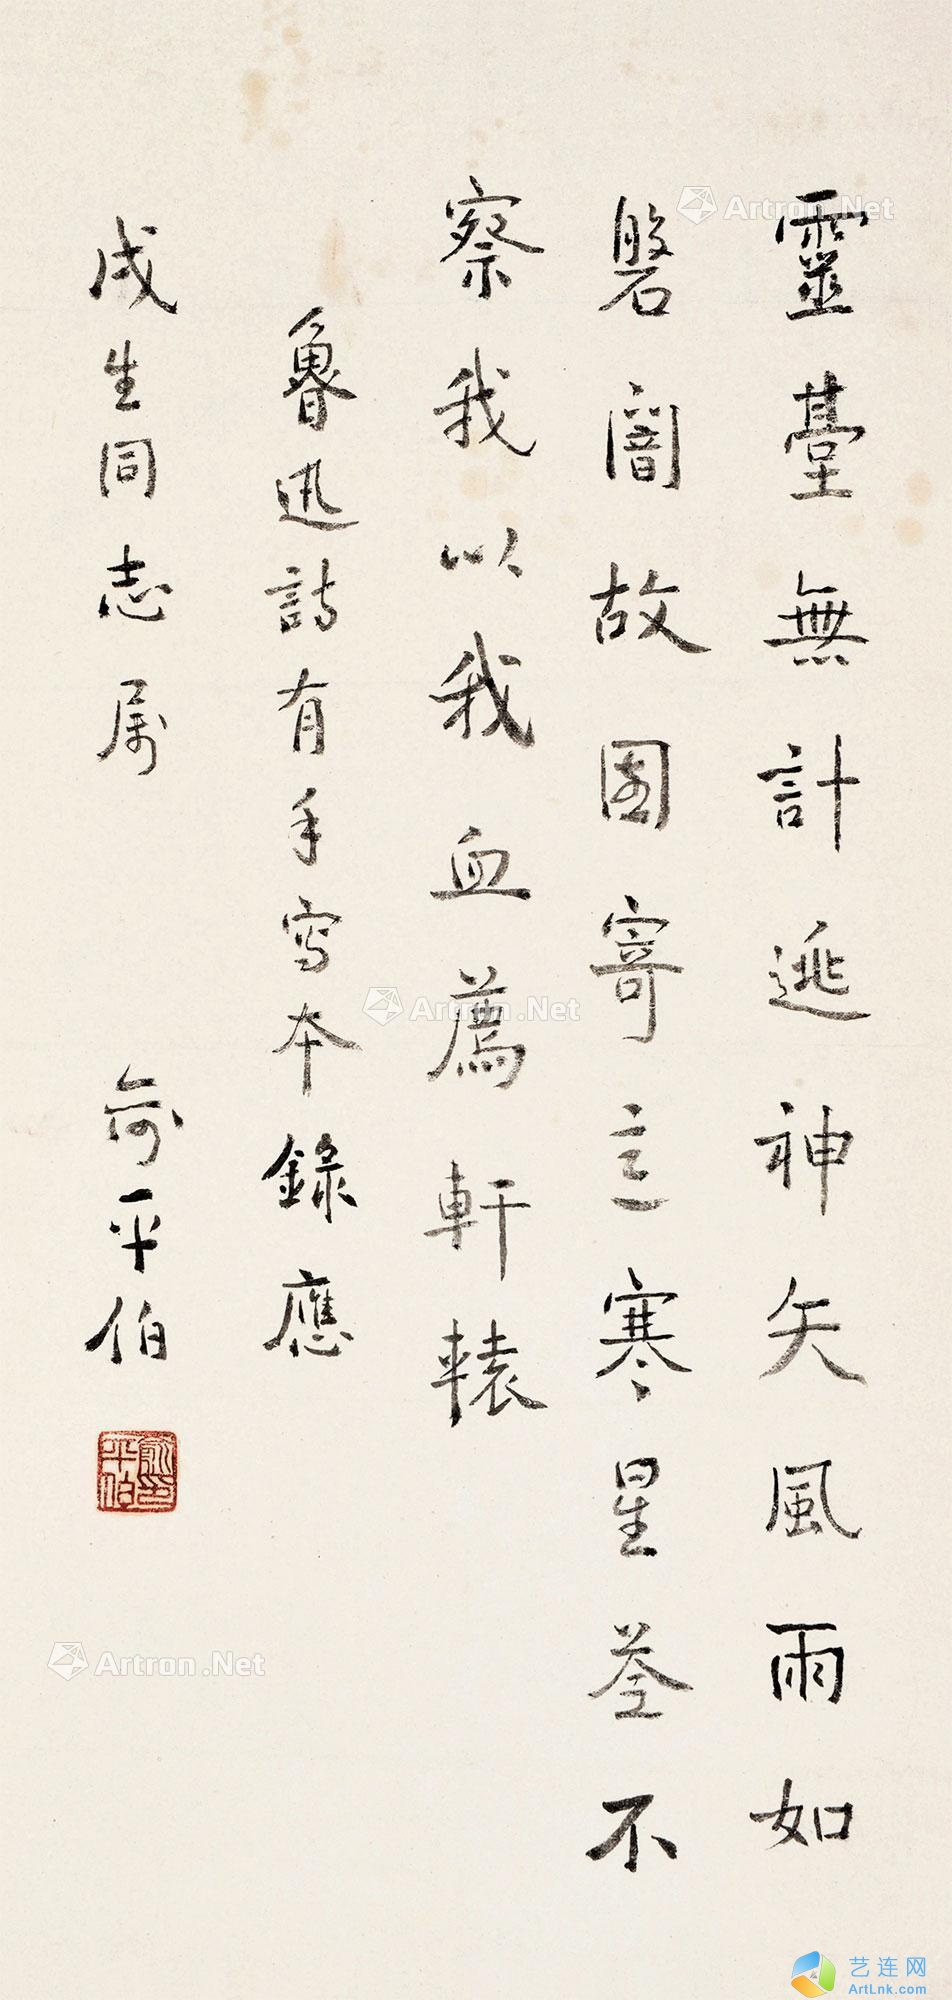 靈臺無計逃神矢風雨如
磐闇故園寄意寒星荃不
察我以我血薦軒轅
魯迅詩有手寫本錄應
成生同志属 俞平伯
俞印平伯
Artron.Net
Artron.Net
Artron.Net
艺连网
ArtLnk.com